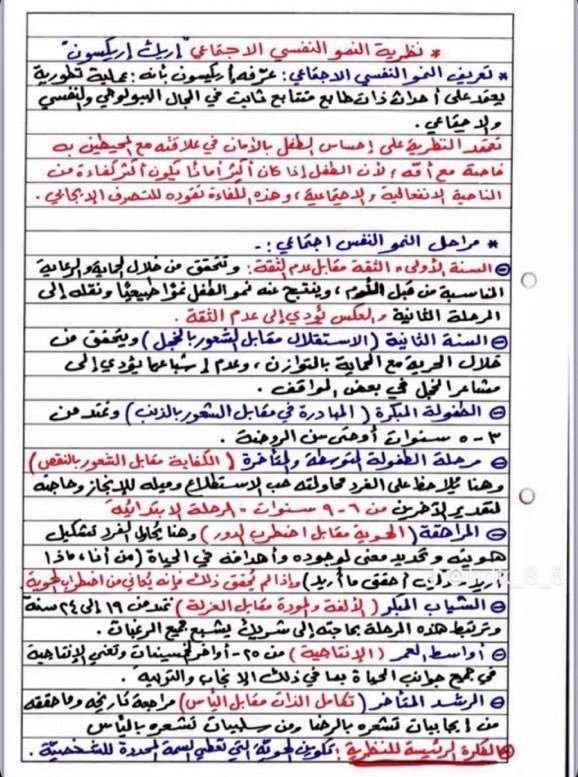 * نظرية النمو النفسي الاجتماعي "إريك إريكسون"
* تعريف النمو النفسي الاجتماعي: عرّفه إريكسون بأنه: عملية تطورية
يعتمد على أحداث ذات طابع متتابع ثابت في المجال البيولوجي والنفسي
والاجتماعي.
تعتمد النظرية على إحساس الطفل بالأمان في علاقته مع المحيطين به
خاصة مع أمه، لأن الطفل إذا كان أكثر أمانًا يكون أكثر كفاءة من
الناحية الانفعالية والاجتماعية، وهذه الكفاءة تقوده للتصرف الإيجابي.
* مراحل النمو النفس اجتماعي:-
السنة الأولى "الثقة مقابل عدم الثقة: وتتحقق من خلال الحماية والرعاية
المناسبة من قبل الأم، وينتج عنه نمو الطفل نموًا طبيعيًا ونقله إلى
المرحلة الثانية والعكس يؤدي إلى عدم الثقة.
السنة الثانية (الاستقلال مقابل الشعور بالخجل) ويتحقق من
خلال الحرية مع الحماية بالتوازن، وعدم إشباعها يؤدي إلى
مشاعر الخجل في بعض المواقف.
الطفولة المبكرة (المبادرة في مقابل الشعور بالذنب) وتمتد من
٣-٥ سنوات أو حتى سن الروضة.
مرحلة الطفولة المتوسطة والمتأخرة (الكفاية مقابل الشعور بالنقص)
وهنا يُلاحظ على الفرد محاولته حب الاستطلاع وميله للإنجاز وحاجته
لتقدير الآخرين من ٦-٩ سنوات "المرحلة الابتدائية"
المراهقة (الهوية مقابل اضطراب الدور) وهنا يحاول الفرد تشكيل
هويته وتحديد معنى لوجوده وأهدافه في الحياة (من أنا، ماذا
أريد، أحقق ما أريد) وإذا لم يُحقق ذلك فإنه يُعاني من اضطراب الهوية.
الشباب المبكر (الألفة والمودة مقابل العزلة) تمتد من ١٩ إلى ٢٤ سنة
وترتبط هذه المرحلة بحاجته إلى شريك يشبع جميع الرغبات.
أواسط العمر (الإنتاجية) من ٢٥- أواخر الخمسينات وتعني الإنتاجية
في جميع جوانب الحياة بما في ذلك الإنجاب والتربية.
الرشد المتأخر (تكامل الذات مقابل اليأس) مراجعة تاريخه وما حققه
من إيجابيات تشعره بالرضا ومن سلبيات تشعره باليأس
* الفكرة الرئيسة للنظرية: تكوين الهوية التي تعطي السمة المحددة للشخصية.